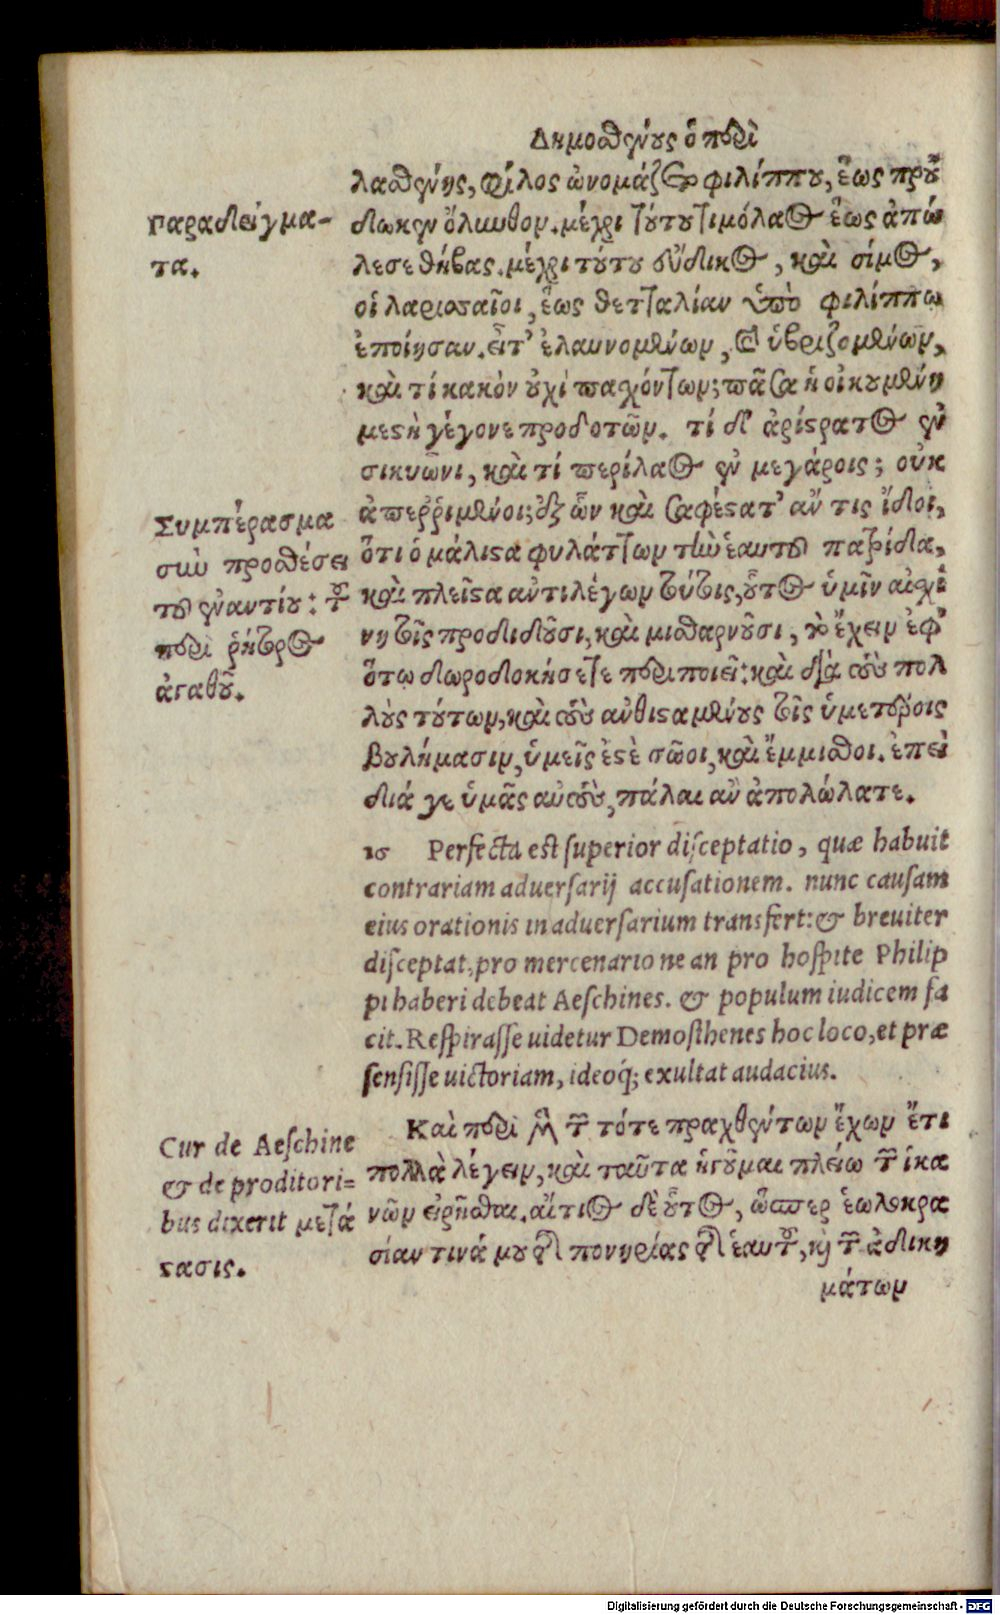 Δημοσθένους ὁ περὶ
λασθένης, φίλος ὠνομάζετο φιλίππου, ἕως προὔ
δωκεν ὄλυνθον. μέχρι τούτου τιμόλαος ἕως ἀπώ
λεσε θήβας. μέχρι τούτου εὔδικος, καὶ σίμος,
οἱ λαρισσαῖοι, ἕως θετταλίαν ὑπὸ φιλίππῳ
ἐποίησαν. εἶτ' ἐλαυνομένων, καὶ ὑβριζομένων,
καὶ τί κακὸν οὐχὶ πασχόντων; πᾶσα ἡ οἰκουμένη
μεστὴ γέγονε προδοτῶν. τί δ' ἀρίστρατος ἐν
σικυῶνι, καὶ τί περίλαος ἐν μεγάροις; οὐκ
ἀπερῥιμένοι; ἐξ ὧν καὶ σαφέστατ' ἄν τις ἴδοι,
ὅτι ὁ μάλιστα φυλάττων τὴν ἑαυτοῦ πατρίδα,
καὶ πλεῖστα ἀντιλέγων τούτοις, οὗτος ὑμῖν αἰσχί
νη τοῖς προδιδοῦσι, καὶ μισθαρνοῦσι, τὸ ἔχειν ἐφ'
ὅτῳ δωροδοκήσετε περιποιεῖ: καὶ διὰ τοὺς πολ
λοὺς τούτων, καὶ τοὺς ἀνθισταμένους τοῖς ὑμετέροις
βουλήμασιν, ὑμεῖς ἐστὲ σῶοι, καὶ ἔμμισθοι. ἐπεὶ
διά γε ὑμᾶς αὐτοὺς, πάλαι ἂν ἀπολώλατε.
16 Perfecta est superior disceptatio, quæ habuit
contrariam aduersarij accusationem. nunc causam
eius orationis in aduersarium transfert: & breuiter
disceptat, pro mercenario ne an pro hospite Philip
pi haberi debeat Aeschines. & populum iudicem fa
cit. Respirasse uidetur Demosthenes hoc loco, et præ
sensisse uictoriam, ideoq́; exultat audacius.
Καὶ περὶ μὲν τῶν τότε πραχθέντων ἔχων ἔτι
πολλὰ λέγειν, καὶ ταῦτα ἡγοῦμαι πλείω τῶν ἱκα
νῶν εἰρῆσθαι. αἴτιος δὲ οὗτος, ὥσπερ ἑωλοκρα
σίαν τινά μου τῆς πονηρίας τῆς ἑαυτοῦ, καὶ τῶν ἀδικη
μάτων
Παραδείγμα-
τα.
Συμπέρασμα
σὺν προσθέσει
τοῦ ἐναντίου: τοῦ
περὶ ῥήτορος
ἀγαθοῦ.
Cur de Aeschine
& de proditori=
bus dixerit μετά
στασις.
Digitalisierung gefördert durch die Deutsche Forschungsgemeinschaft - DFG